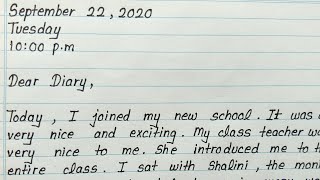 September 22, 2020
Tuesday
10:00 p.m
Dear Diary,
Today, I joined my new school. It was a
very nice and exciting. My class teacher wa
very nice to me. She introduced me to th
entire class. I sat with Shalini, the mon